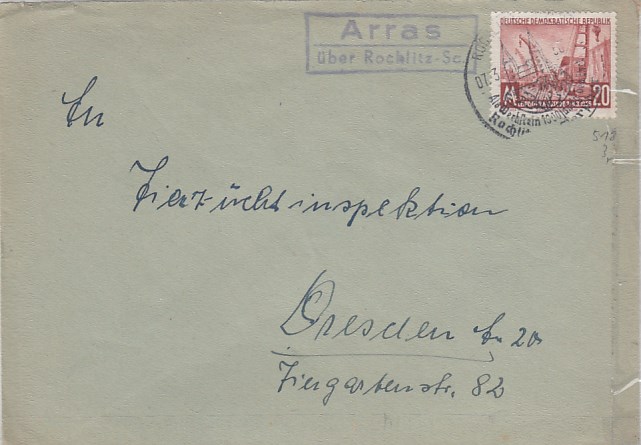 Arras
über Rochlitz-Sa.
DEUTSCHE DEMOKRATISCHE REPUBLIK
20
07.3.
An
Tierzuchtinspektion
Dresden A 20
Tiergartenstr. 82